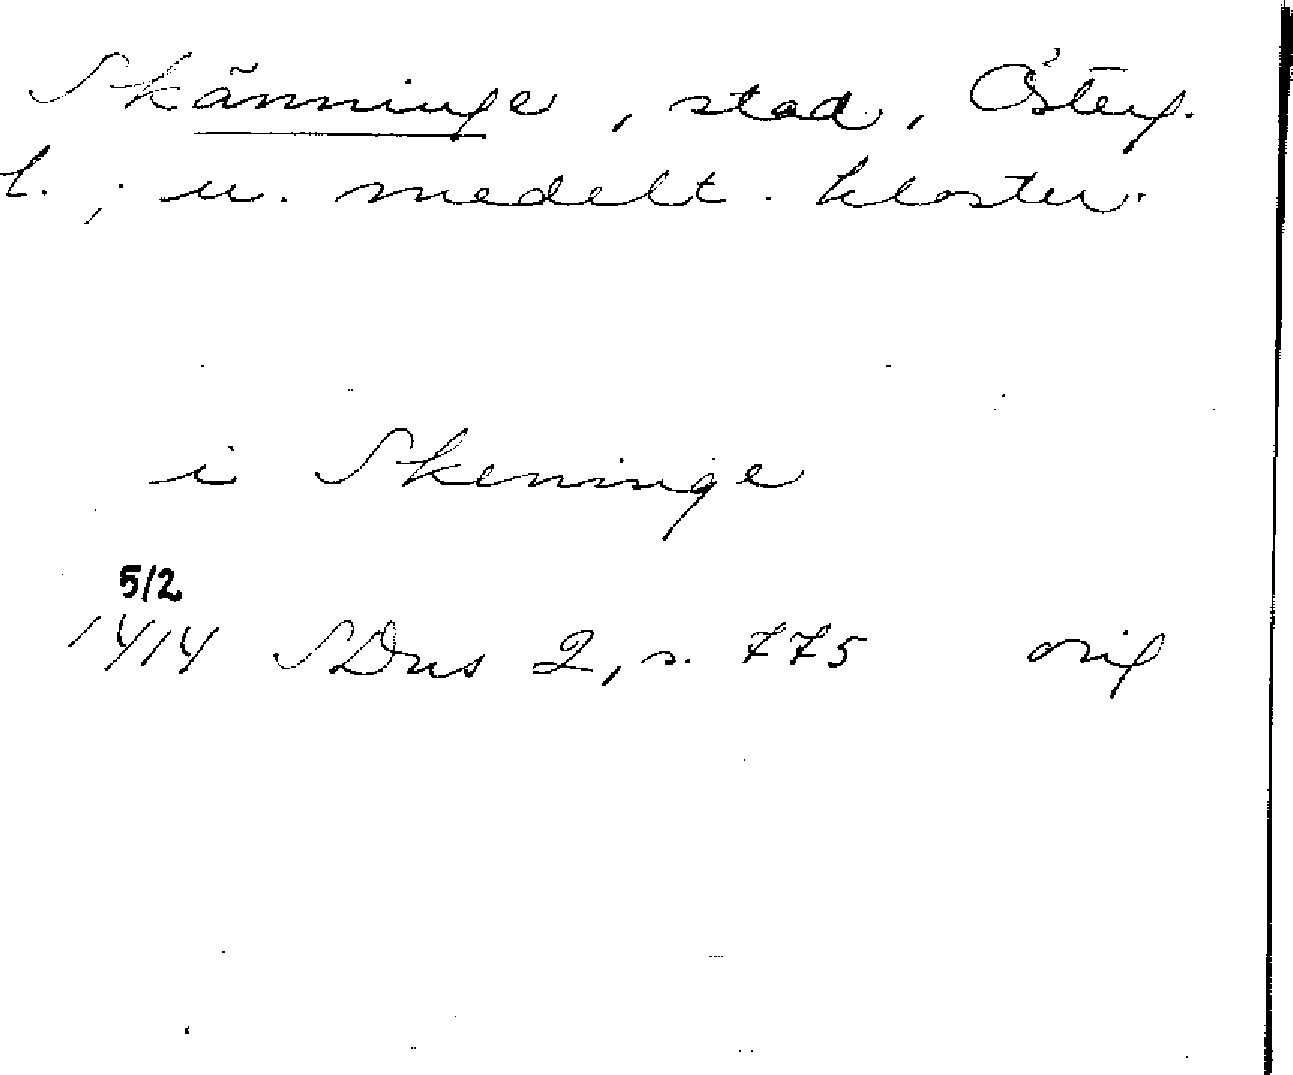 Skänninge, stad, Österg.
l.; u. medelt. kloster.
i Skeninge
5/2
1414 SDns 2, s. 775 orig